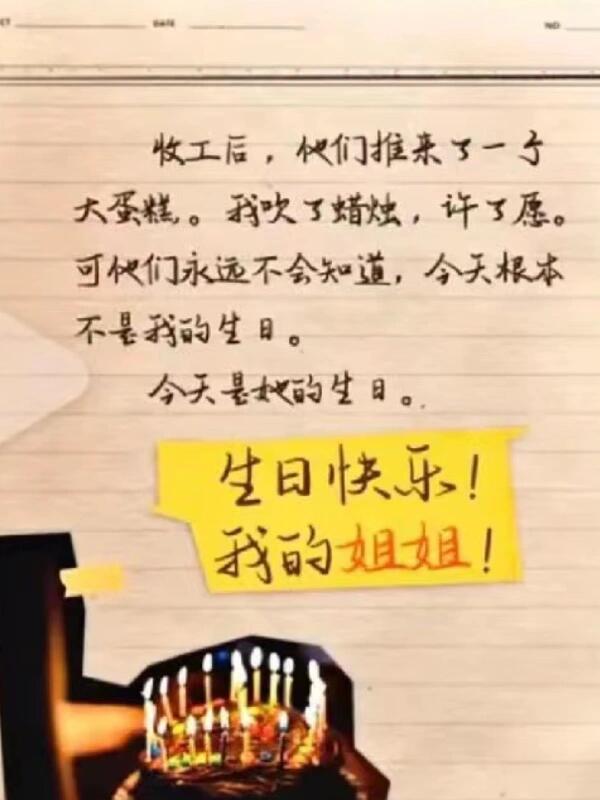 DATE
NO
收工后，他们推来了一个
大蛋糕。我吹了蜡烛，许了愿。
可他们永远不会知道，今天根本
不是我的生日。
今天是她的生日。
生日快乐！
我的姐姐！